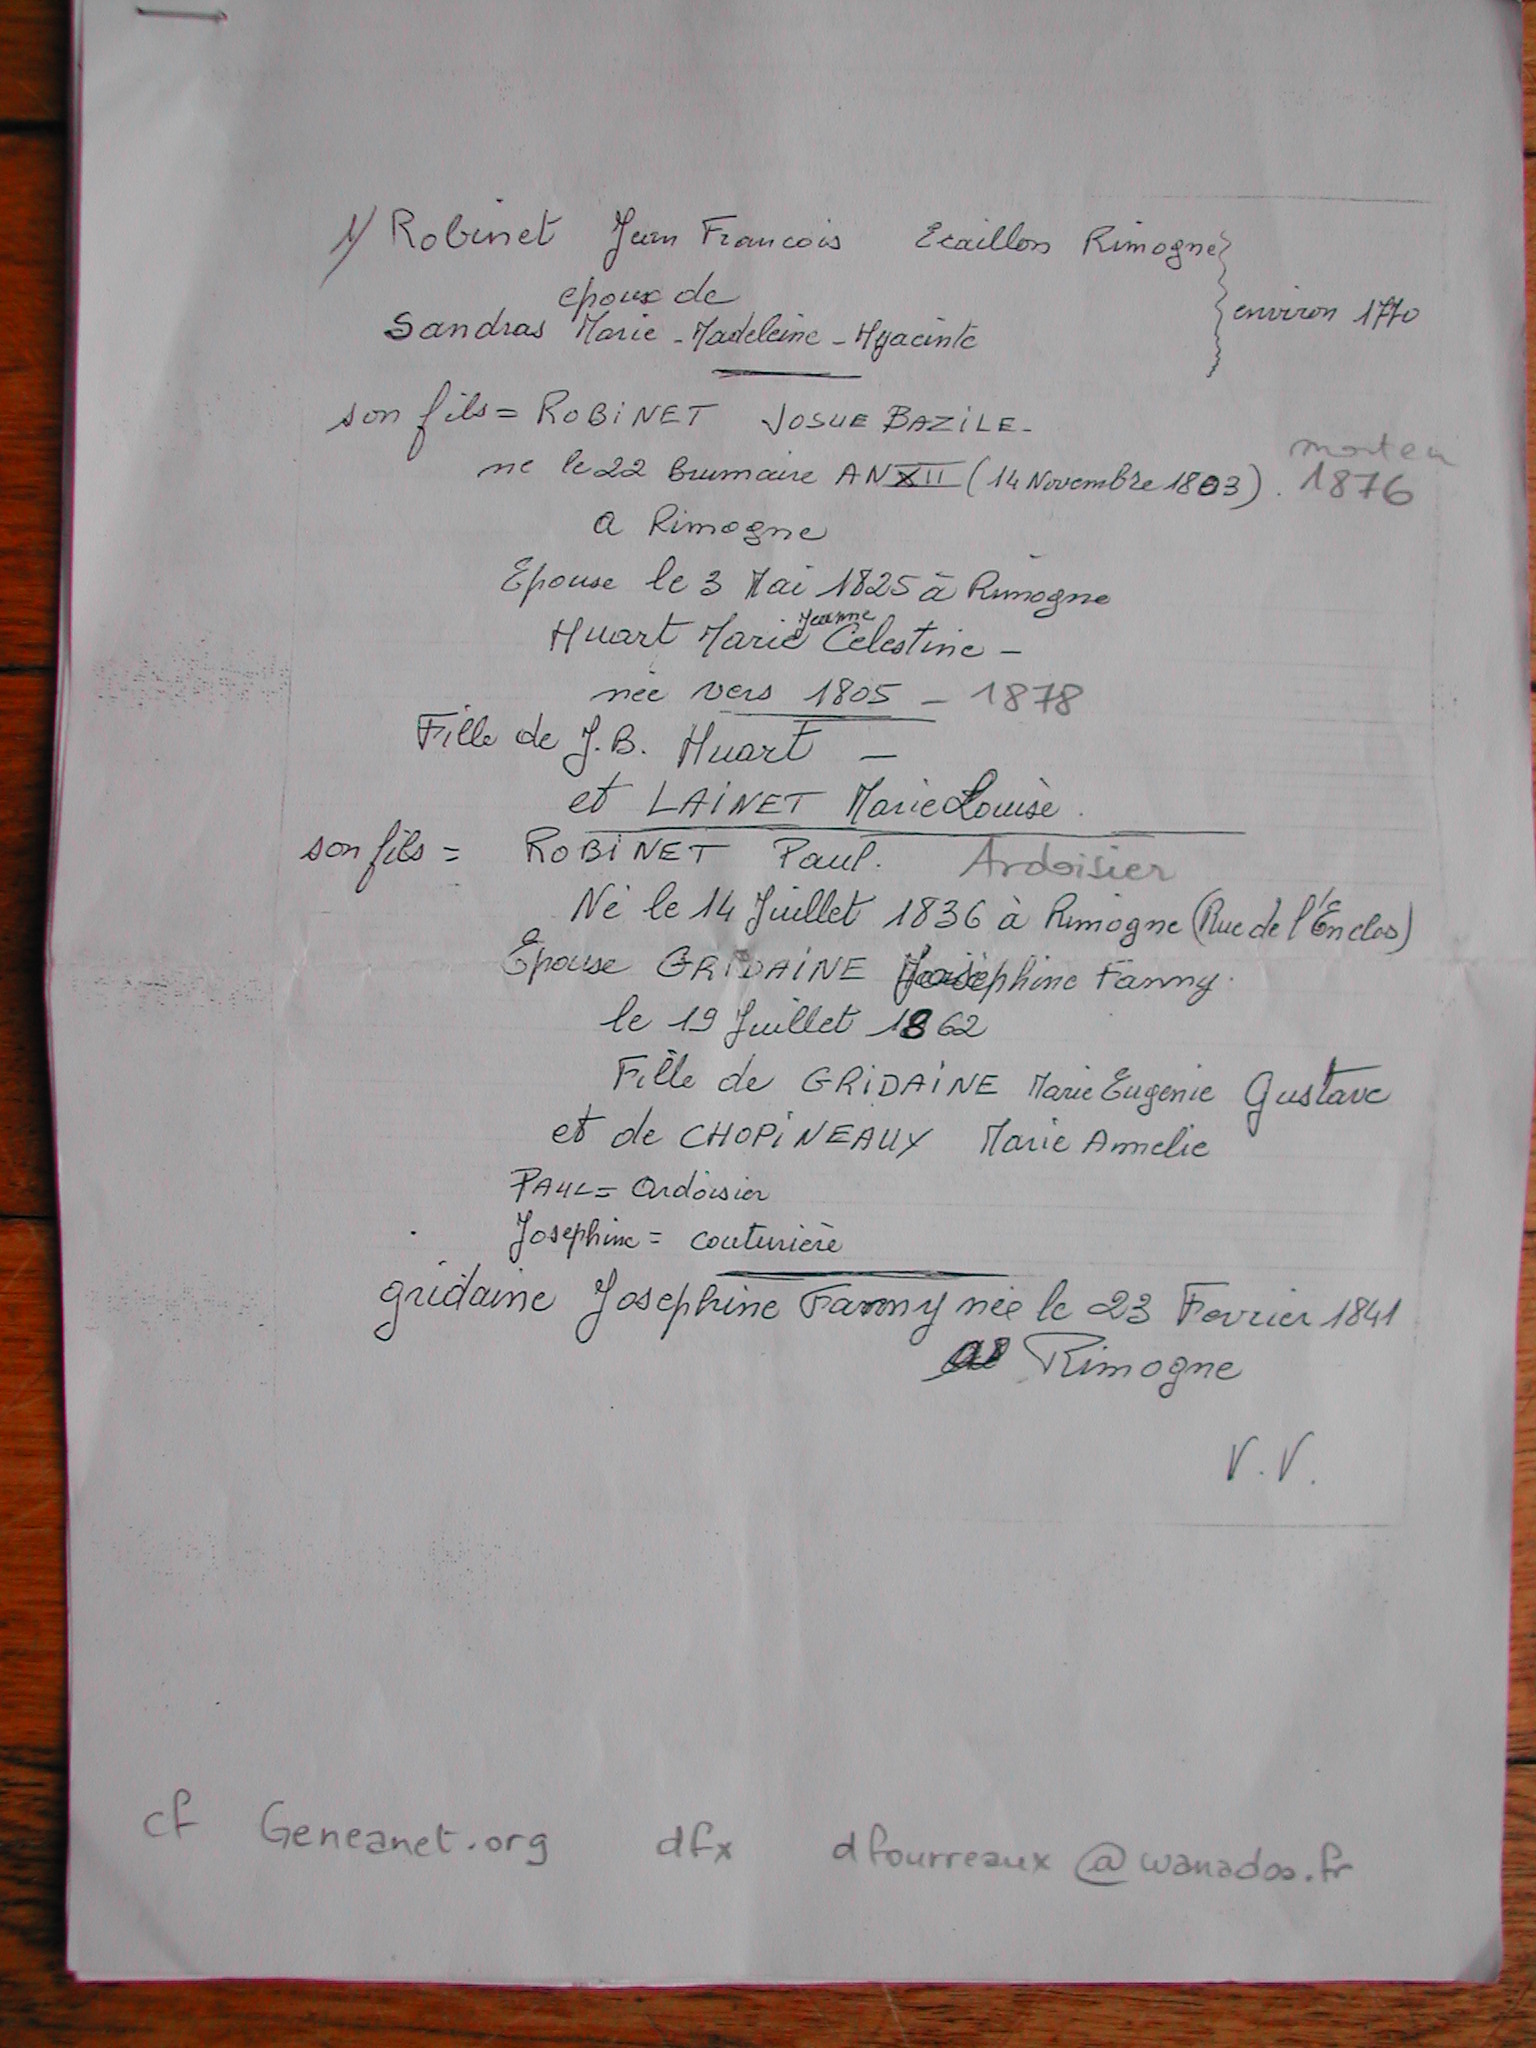 1/ Robinet Jean Francois Ecaillon Rimogne
epoux de
environ 1770
Sandras Marie - Madeleine - Hyacinte
son fils = ROBINET JOSUE BAZILE -
mort en
ne le 22 brumaire AN XII (14 Novembre 1803). 1876
a Rimogne
Epouse le 3 Mai 1825 à Rimogne
Jeanne
Huart Marie Celestine -
née vers 1805 - 1878
Fille de J.B. Huart -
et LAINET Marie Louise.
son fils = ROBINET Paul. Ardoisier
Né le 14 Juillet 1836 à Rimogne (Rue de l'Enclos)
Epouse GRIDAINE Josephine Fanny.
le 19 Juillet 1862
Fille de GRIDAINE Marie Eugenie Gustave
et de CHOPINEAUX Marie Annelie
PAUL = Ardoisier
Josephine = couturière
gridaine Josephine Fanny née le 23 Fevrier 1841
Rimogne
V.V.
cf Geneanet.org dfx dfourreaux@wanadoo.fr